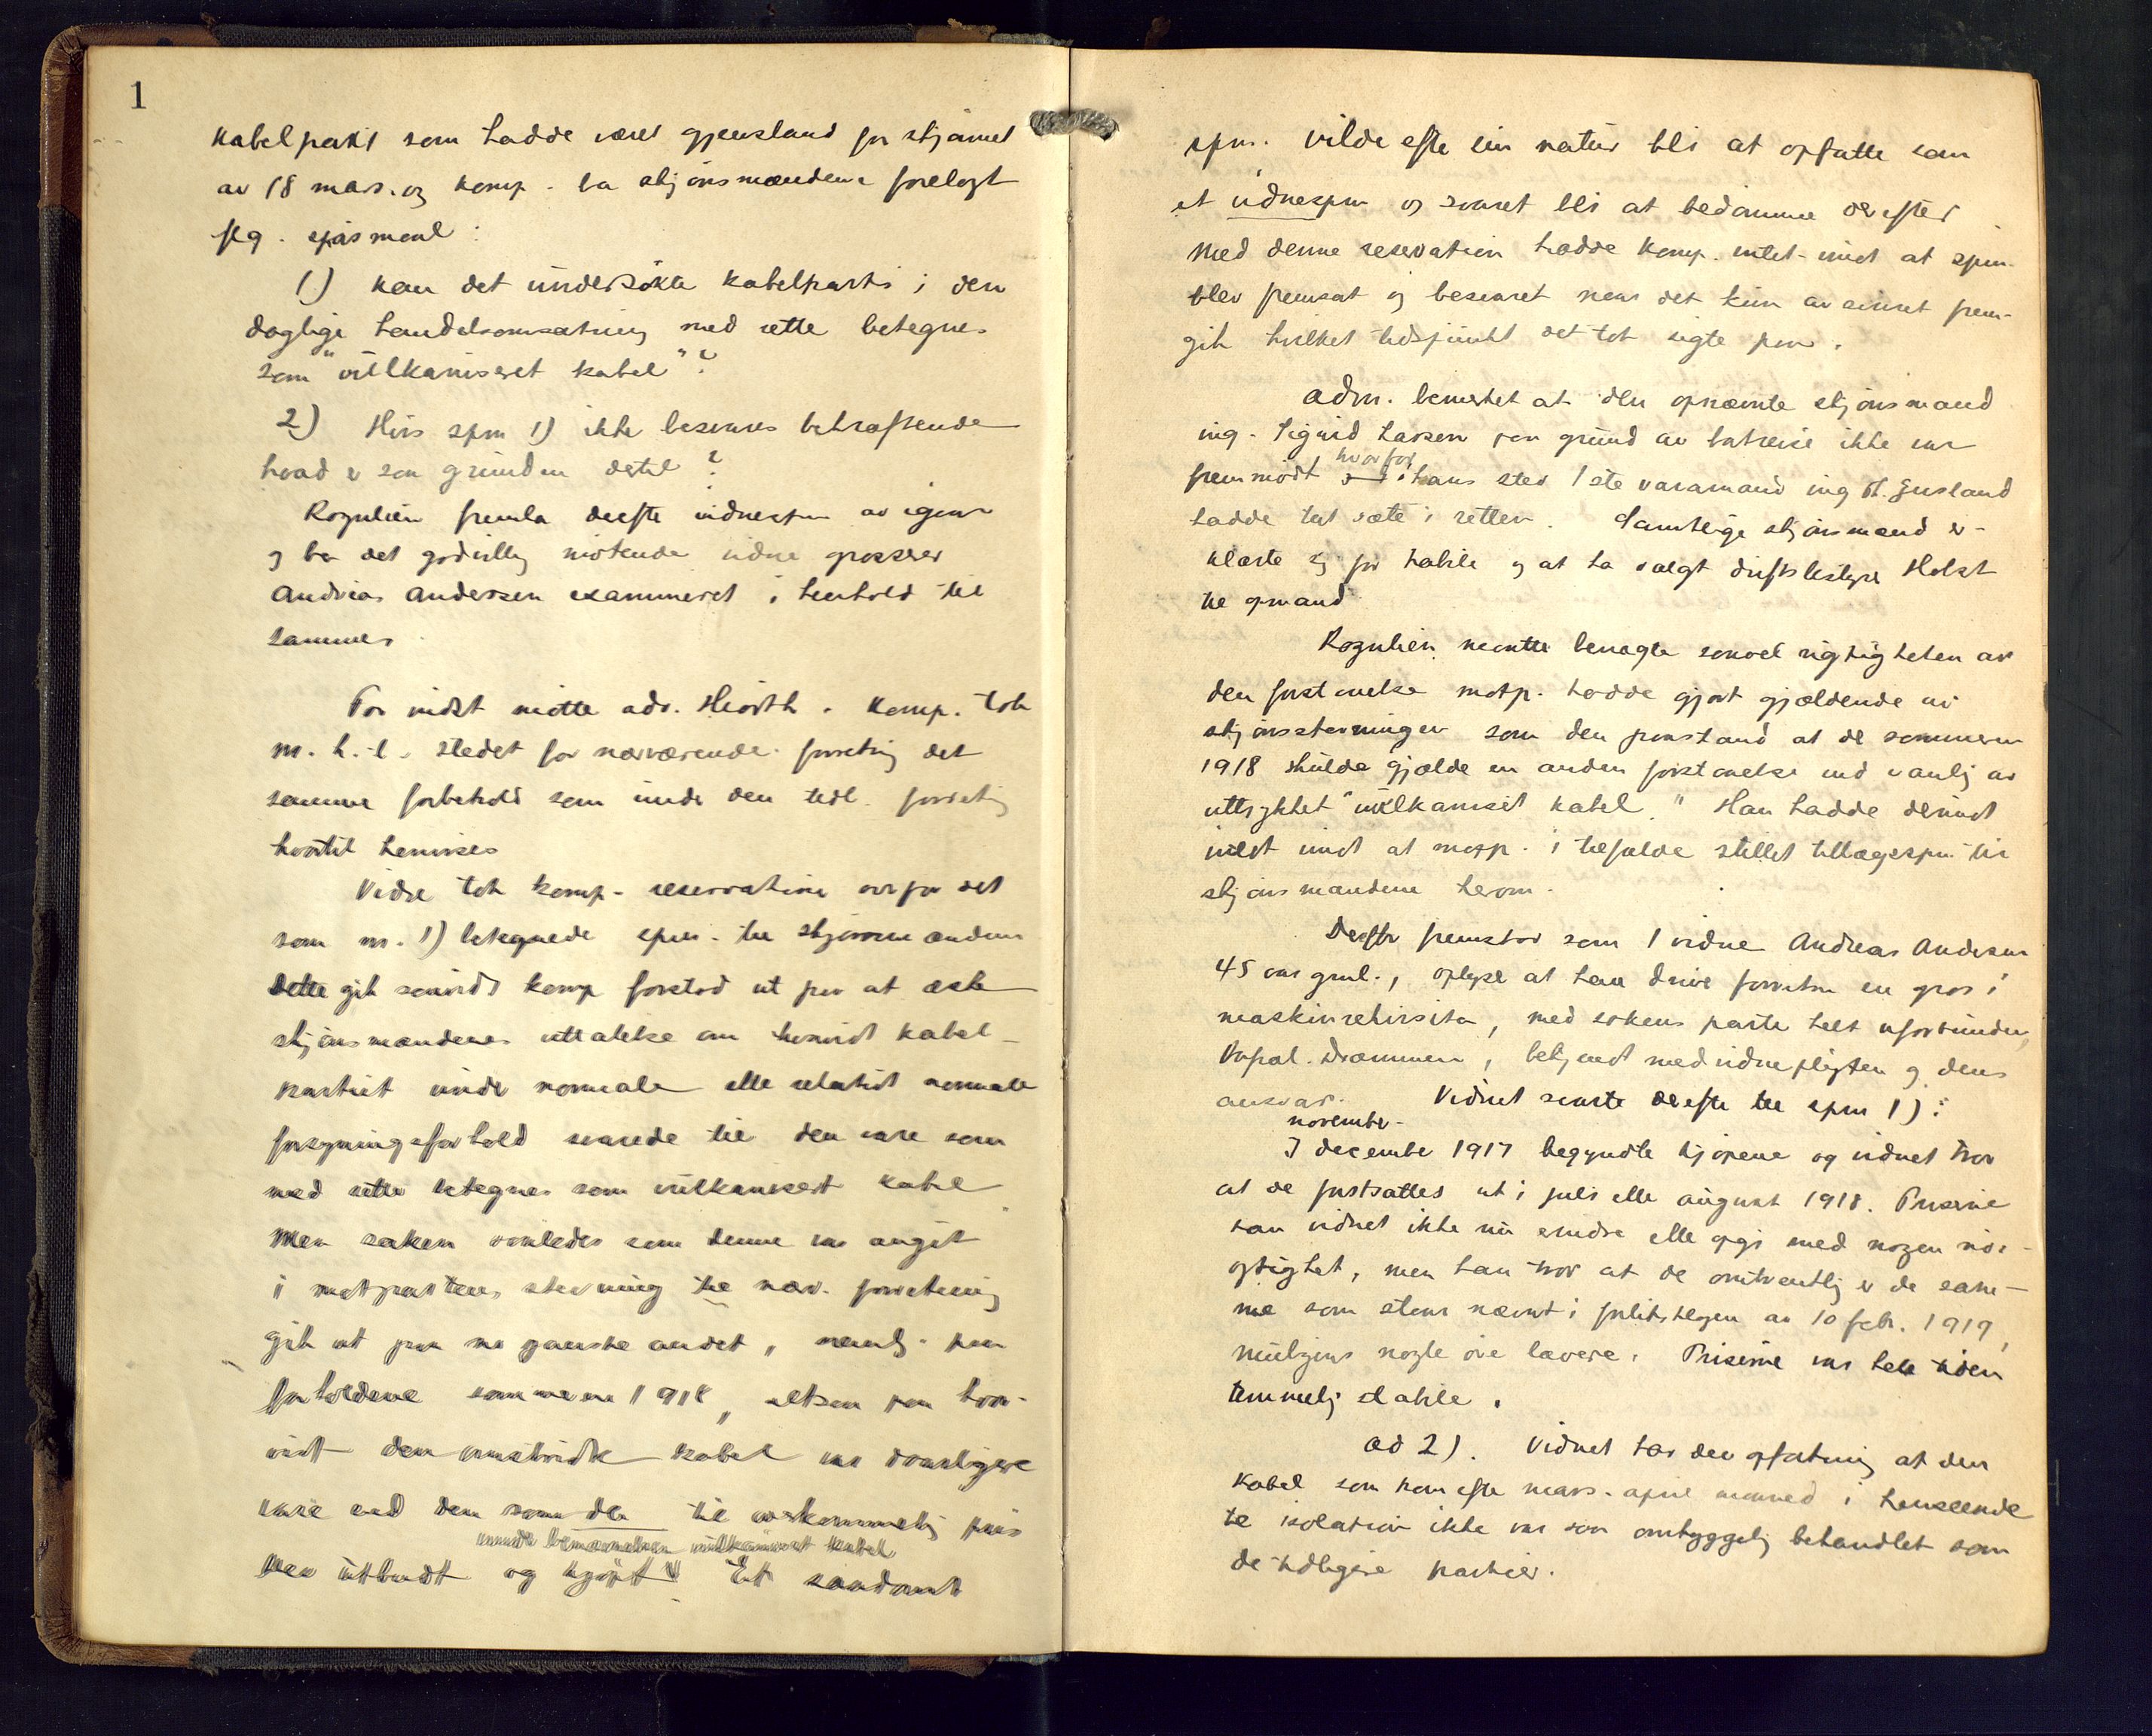 1
kabelparti som hadde været gjenstand for skjønnet
av 18 mars. og komp. ba skjönsmændene forelagt
flg. spörsmaal:
1) Kan det undersökte kabelparti i den
daglige handelsomsætning med rette betegnes
som "vulkaniseret kabel"?
2) Hvis spm 1) ikke besvares bekræftende
hvad er saa grunden dertil?
Rognlien fremla derefter vidnespm av igaar
og ba det godvillig mötende vidne grosserer
Andreas Andersen examineret i henhold til
sammes.
For indst mötte adv. Hiorth. Komp. tok
m.h.t. stedet for nærværende forretning det
samme forbehold som under den tidl. forretning
hvortil henvises
Videre tok komp. reservation overfor det
som nr. 1) betegnede spm. til skjønsmændene
Dette gik saavidt komp forstod ut paa at æske
skjönsmændenes uttalelse om hvorvidt kabel-
partiet under normale eller relativt normale
forsyningsforhold svarede til den vare som
med rette betegnes som vulkaniseret kabel
Men saken saaledes som denne var angit
i motpartens stevning til nærv. forretning
gik ut paa no ganske andet, nemlig paa
forholdene sommeren 1918, altsaa paa hvor-
vidt den omstridte kabel var daarligere
vare end den som da til overkommelig pris
under benævnelsen vulkaniseret kabel
blev utbudt og kjöpt. Et saadant
spm. vilde efter sin natur bli at opfatte som
et vidnespm og svaret bli at bedömme derefter
Med denne reservation hadde komp. intet imot at spm.
blev fremsat og besvaret naar det kun av svaret frem-
gik hvilket tidspunkt det tok sigte paa.
Adm. bemerket at den opnævnte skjönsmand
ing. Sigurd Larsen paa grund av bortreise ikke var
fremmött hvorfor i hans sted 1ste varamand ing
hadde tat sæte i retten. Samtlige skjönsmænd er-
klærte sig for habile og at ha valgt driftsbestyrer Holst
til opmand
Rognlien maatte benegte saavel rigtigheten av
den forstaaelse motp. hadde gjort gjældende av
skjönsstevningen som den paastand at der sommeren
1918 skulde gjælde en anden forstaaelse end vanlig av
uttrykket "vulkaniseret kabel." Han hadde derimot
intet imot at motp. i tilfælde stillet tillægsspm. til
skjönsmændene herom.
Derefter fremstod som 1 vidne Andreas Andersen
45 aar gml., oplyser at han driver forretn en gros i
maskinrekvisita, med sakens parter helt uforbunden,
bopæl. Drammen, bekjendt med vidnepligten og dens
ansvar. Vidnet svarte derefter til spm 1):
november-
I december 1917 begyndte kjöpene og vidnet tror
at de fortsattes ut i juli eller august 1918. Priserne
kan vidnet ikke nu erindre eller opgi med nogen nöi-
agtighet, men han tror at de omtrentlig er de sam-
me som staar nævnt i av 10 febr. 1919,
muligens nogle öre lavere. Priserne var hele tiden
temmelig stabile.
ad 2). Vidnet har den opfatning at den
kabel som kom efter mars-april maaned i henseende
til isolation ikke var saa omhyggelig behandlet som
de tidligere partier.